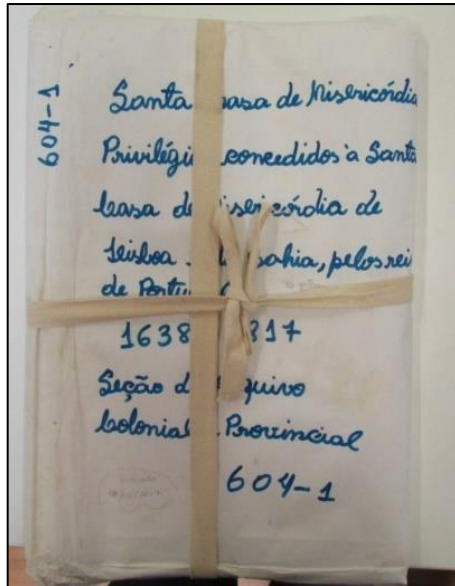 604-1
Santa Casa de Misericórdia
Privilégi concedidos à Santa
Casa de isericórdia de
Lisboa Bahia, pelos rei
de Portu
1638 817
Seção d quivo
Colonial Provincial
604-1